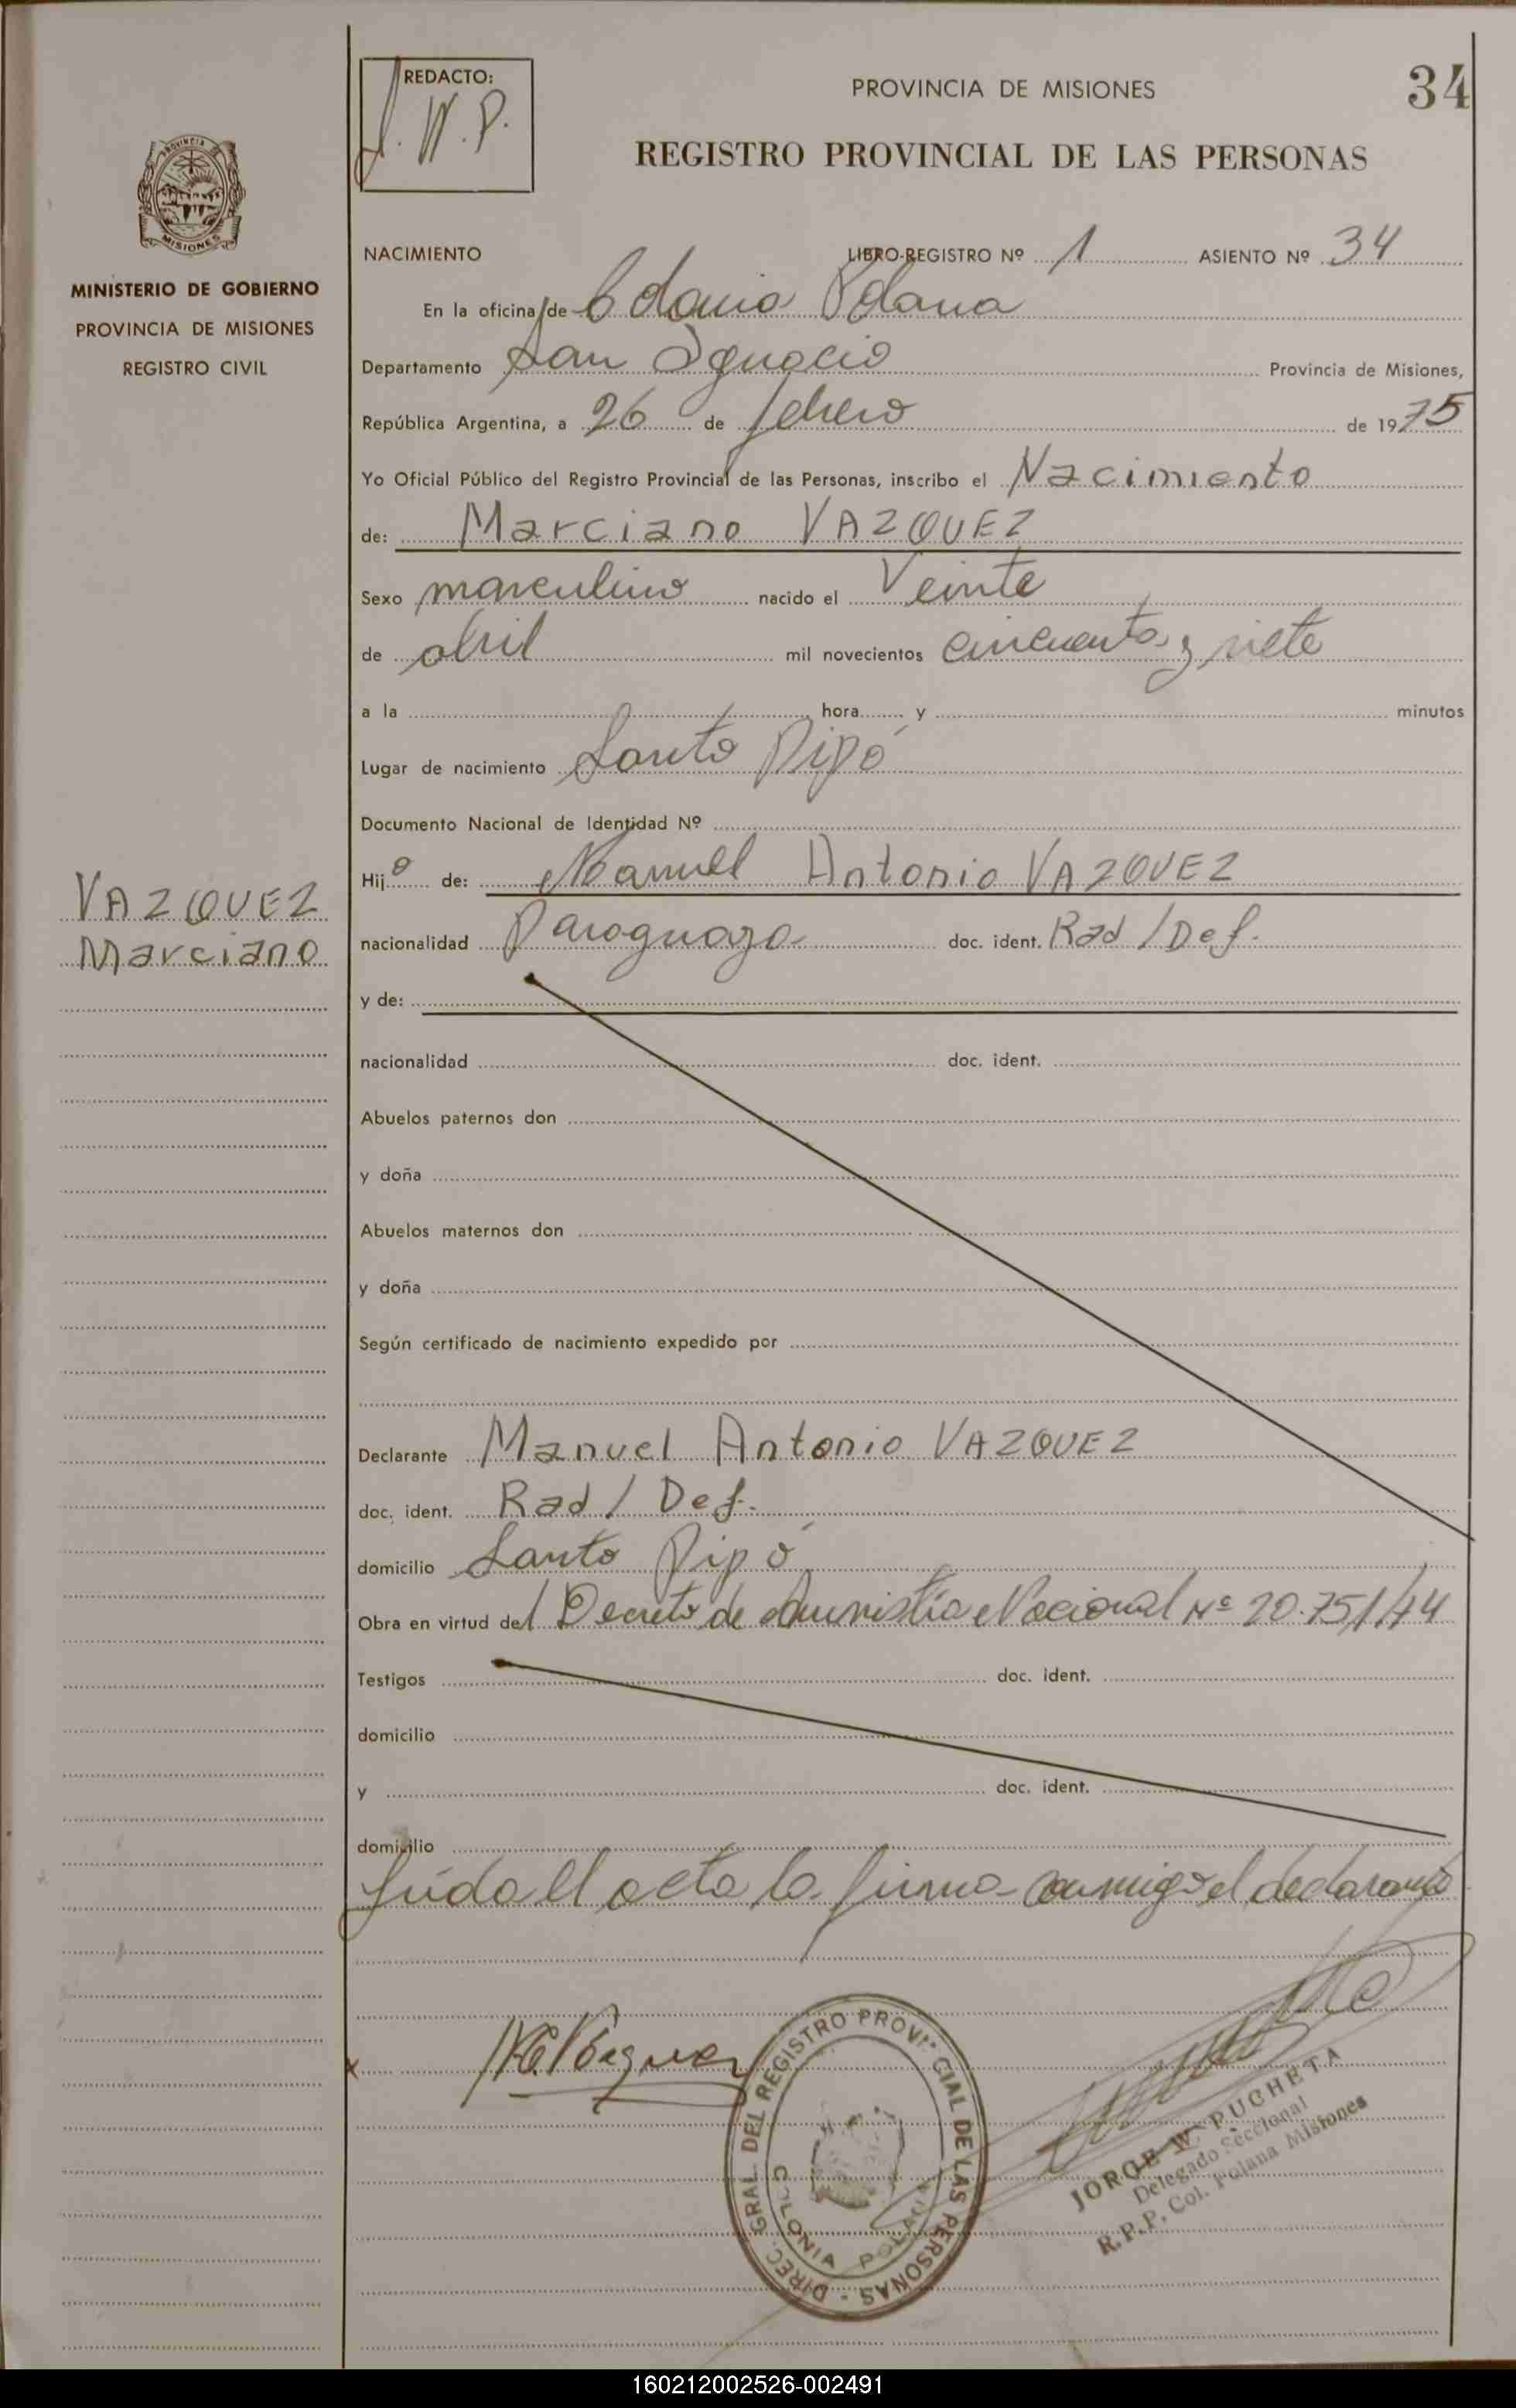 REDACTO:
J. W. P.
PROVINCIA DE MISIONES
34
REGISTRO PROVINCIAL DE LAS PERSONAS
MISIONES
MINISTERIO DE GOBIERNO
PROVINCIA DE MISIONES
REGISTRO CIVIL
NACIMIENTO LIBRO-REGISTRO Nº 1 ASIENTO Nº 34
En la oficina de Colonia Polana
Departamento San Ignacio Provincia de Misiones,
República Argentina, a 26 de febrero de 1975
Yo Oficial Público del Registro Provincial de las Personas, inscribo el Nacimiento
de: Marciano VAZQUEZ
Sexo masculino nacido el Veinte
de abril mil novecientos cincuenta y siete
a la hora y minutos
Lugar de nacimiento Santo Pipó
Documento Nacional de Identidad Nº
Hijo de: Manuel Antonio VAZQUEZ
VAZQUEZ
Marciano
nacionalidad Paraguaya doc. ident. Rad/Def.
y de:
nacionalidad doc. ident.
Abuelos paternos don
y doña
Abuelos maternos don
y doña
Según certificado de nacimiento expedido por
Declarante Manuel Antonio VAZQUEZ
doc. ident. Rad/Def.
domicilio Santo Pipó
Obra en virtud del Decreto de Amnistía Nacional Nº 20.751/74
Testigos doc. ident.
domicilio
y doc. ident.
domicilio
Leída el acta la firma conmigo el declarante
DIREC. GRAL. DEL REGISTRO PROVINCIAL DE LAS PERSONAS -
COLONIA POLANA
JORGE W. PUCHETA
Delegado Seccional
R.P.P. Col. Polana Misiones
160212002526-002491